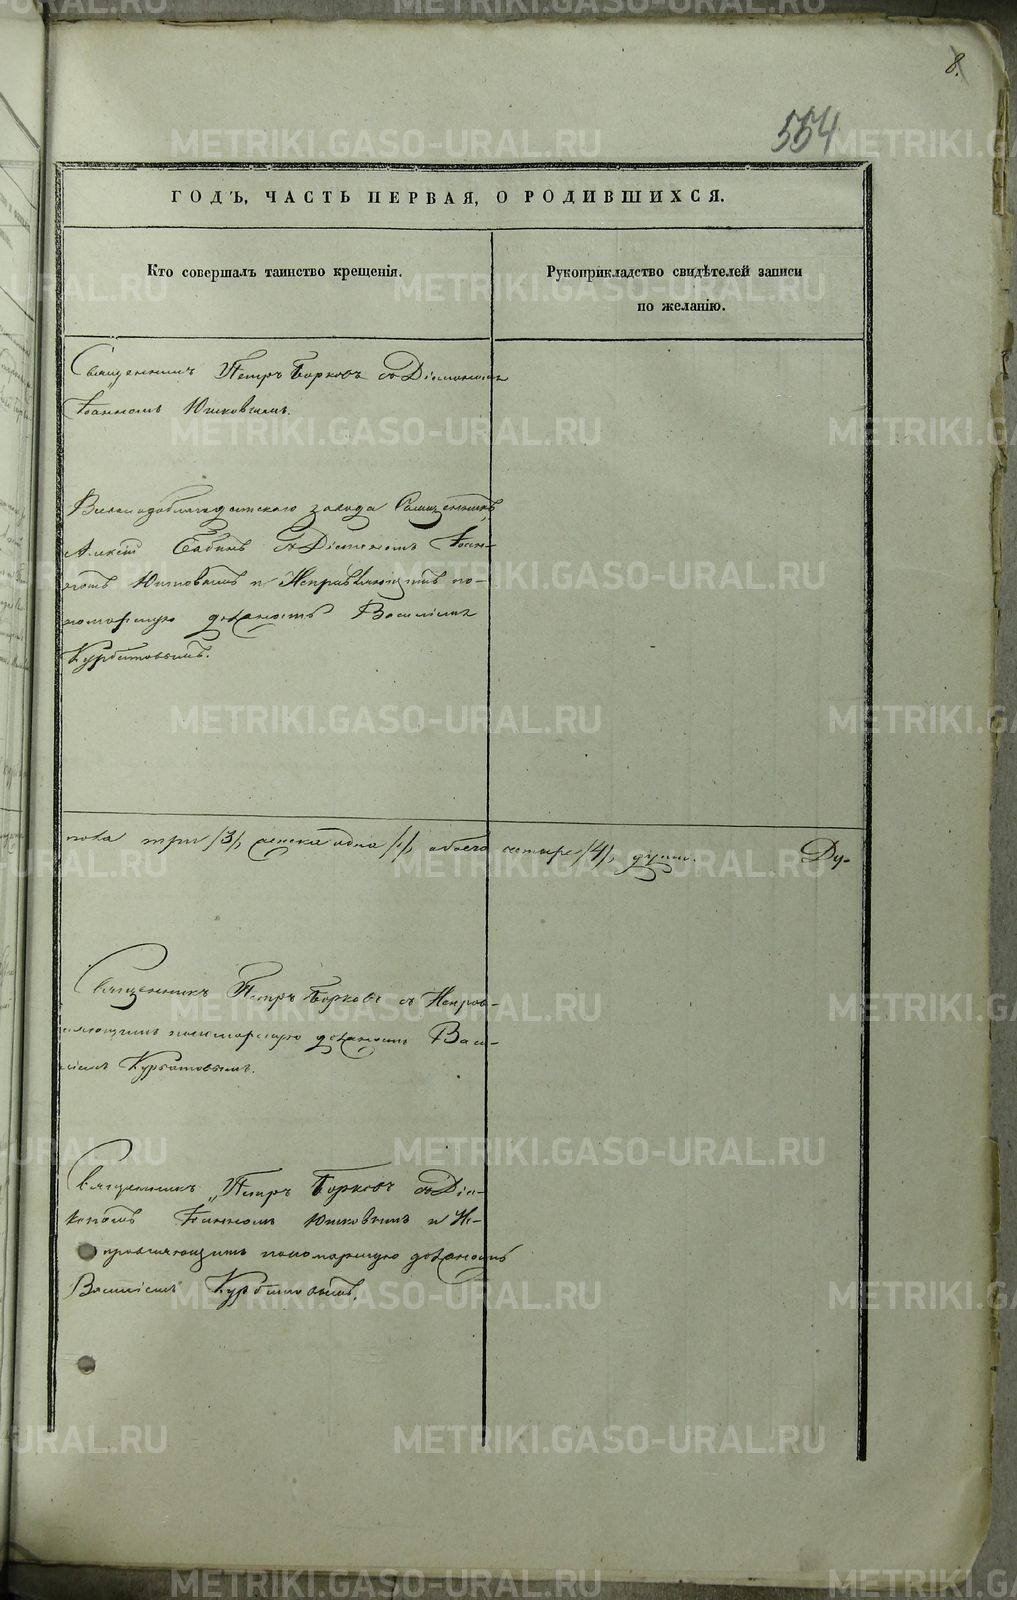 8.
554
ГОДЪ, ЧАСТЬ ПЕРВАЯ, О РОДИВШИХСЯ.
Кто совершалъ таинство крещенія.
Рукоприкладство свидѣтелей записи
по желанію.
Священникъ Петръ Борковъ съ Діакономъ
Іоанномъ Юшковымъ.
Верхнобаранчинскаго завода Священникъ
Алексій Бабинъ съ Діакономъ Іоан-
номъ Юшковымъ и Исправляющимъ по-
номарскую должность Василіемъ
Курбатовымъ.
пола три /3/, женска одна /1/, обоего четыре /4/, души. Ду-
Священникъ Петръ Борковъ съ Исправ-
ляющимъ пономарскую должность Васи-
ліемъ Курбатовымъ.
Священникъ Петръ Борковъ съ Діа-
кономъ Іоанномъ Юшковымъ и Ис-
правляющимъ пономарскую должность
Василіемъ Курбатовымъ.
METRIKI.GASO-URAL.RU